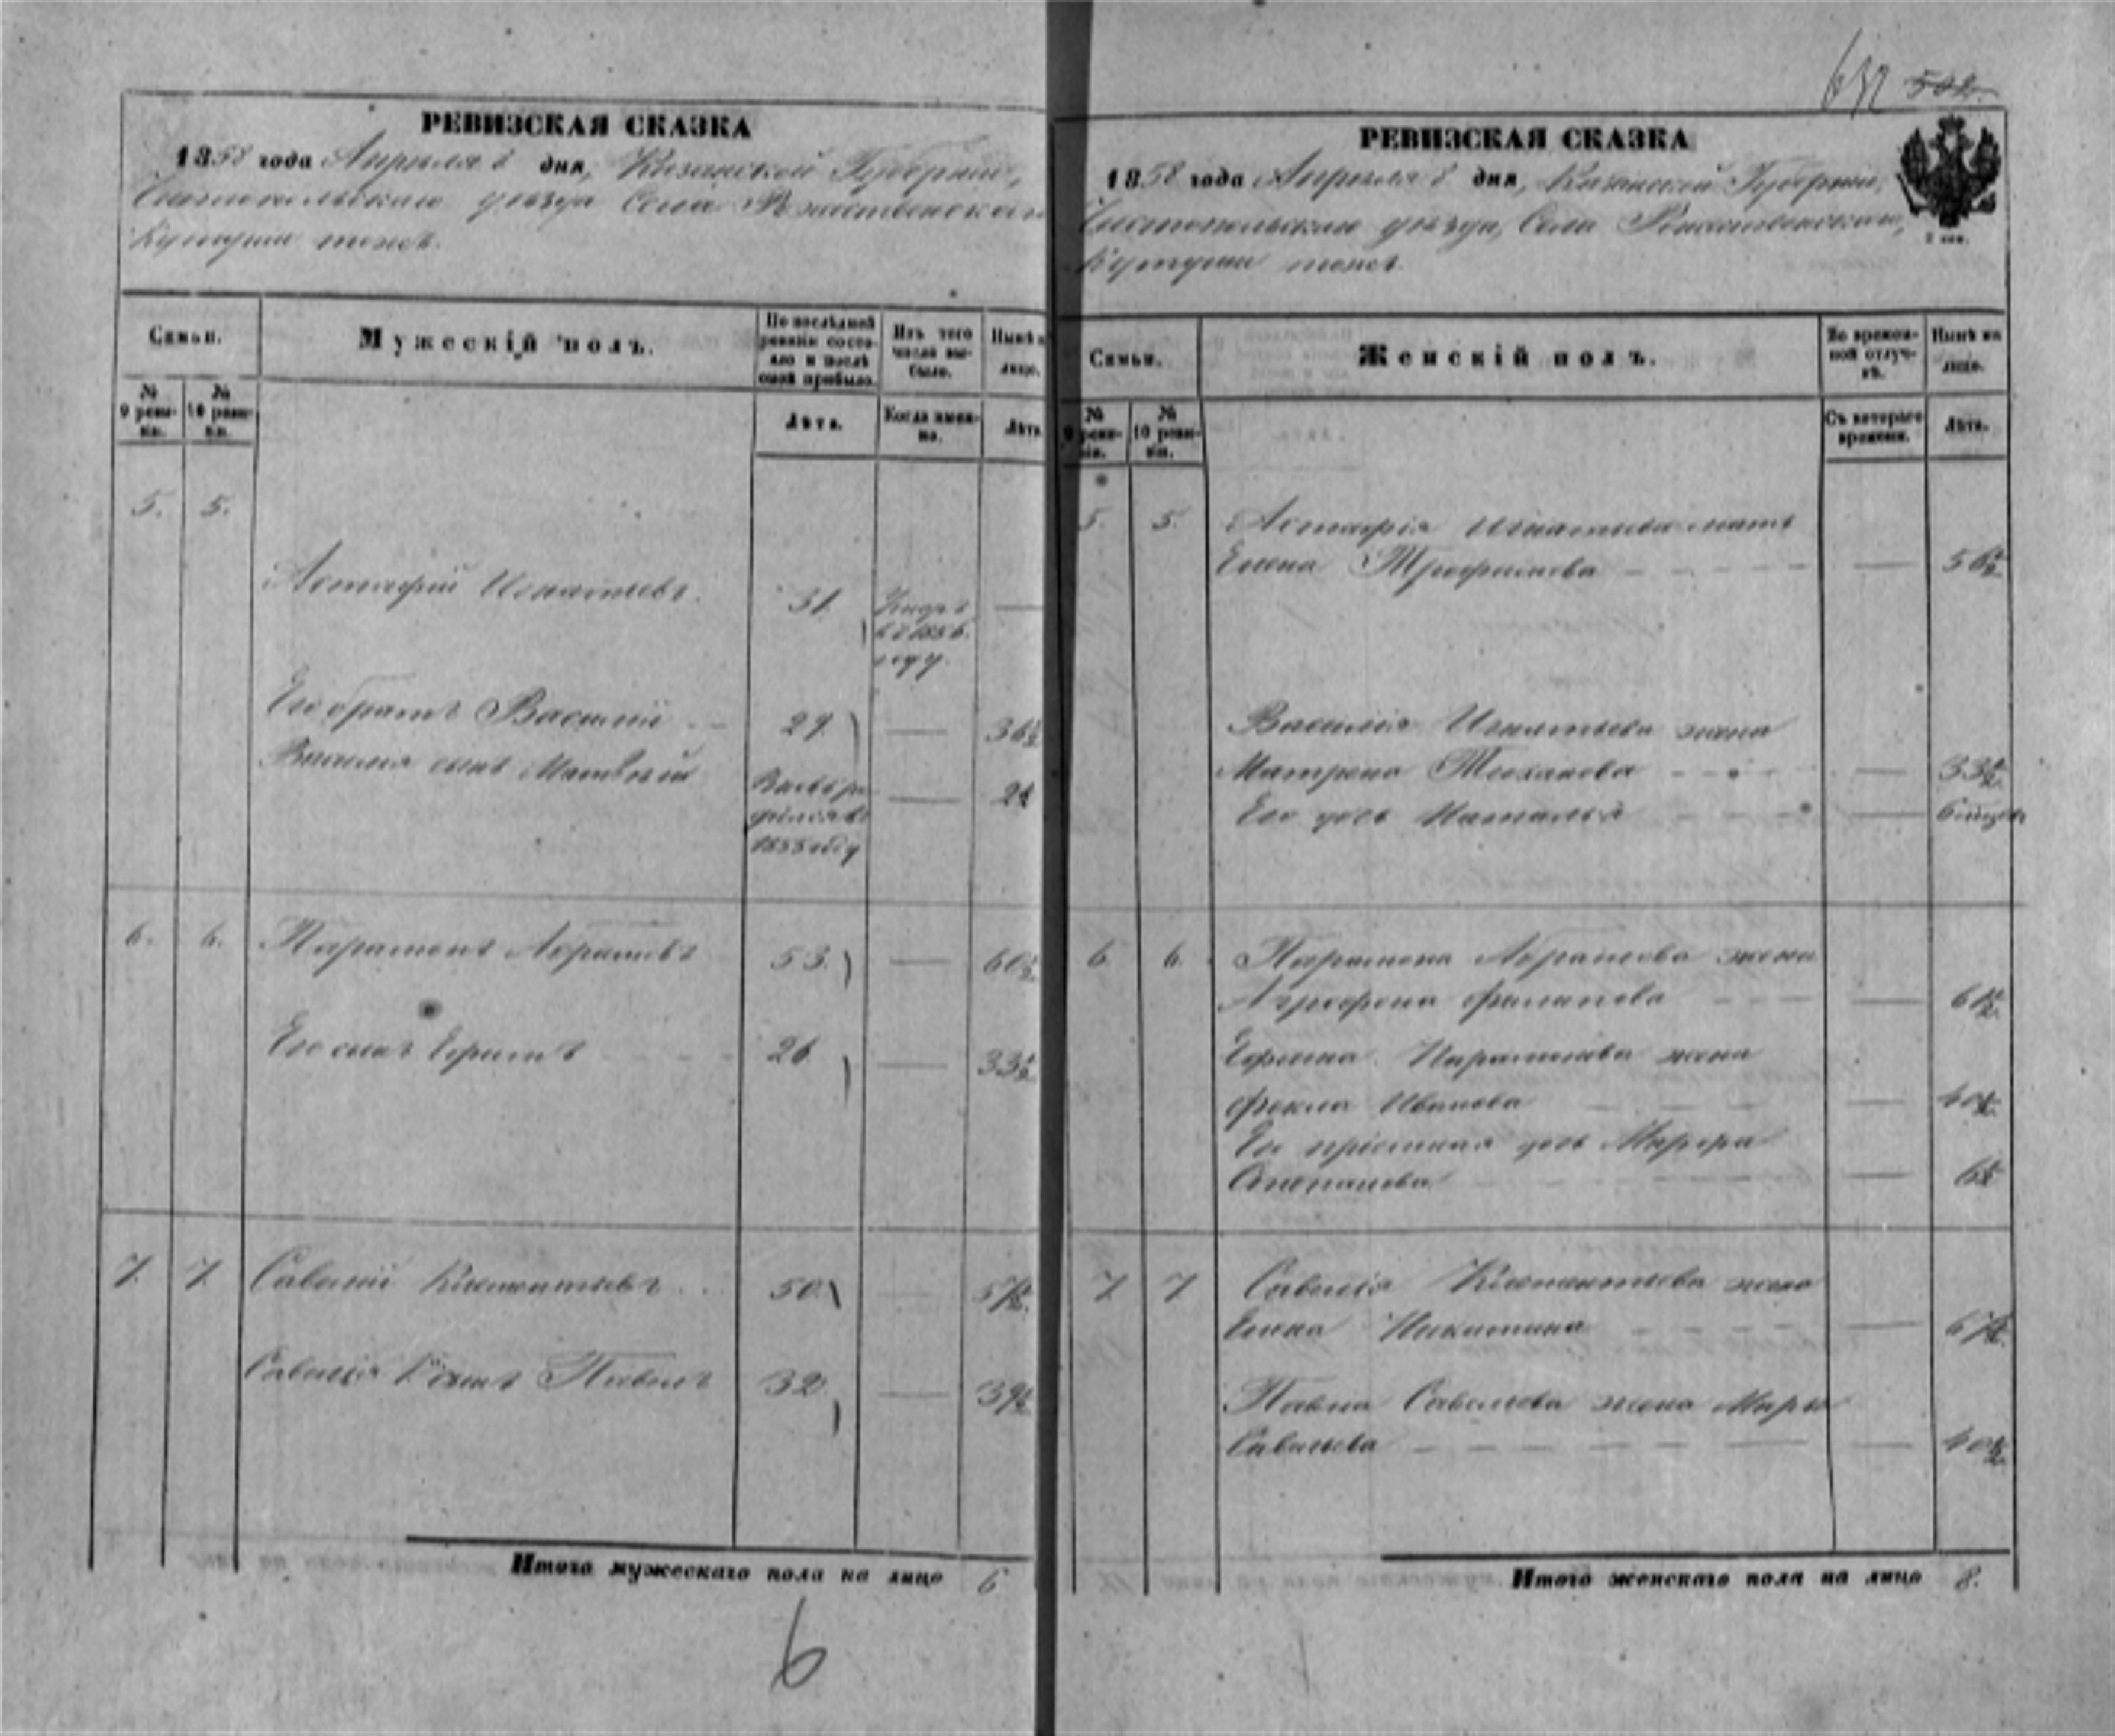 632 502
РЕВИЗСКАЯ СКАЗКА
1858 года Апреля 8 дня, Казанской Губернии,
Чистопольскаго уезда Села Рожественскаго
Кутуши тожъ.
Семьи.
Мужескій полъ.
По последней ревизіи состояло и после оной прибыло.
Изъ того числа выбыло.
Ныне на лицо.
№ 9 ревизіи.
№ 10 ревизіи.
Лета.
Когда именно.
Лета.
5. 5.
Астафій Игнатьевъ. 31.
въ 1856.
году.
Его братъ Василий 29 36½
Василія сынъ Матвей 2½
1855 году
6. 6. Парамонъ Абрамовъ 53. 60½
Его сынъ Ефимъ 26 33½
7. 7. Савелий Клементьевъ 50 57½
Савелія сынъ Павелъ 32 39½
Итого мужескаго пола на лицо 6
6
РЕВИЗСКАЯ СКАЗКА
1858 года Апреля 8 дня, Казанской Губернии,
Чистопольскаго уезда, Села Рожественскаго,
Кутуши тожъ.
Семьи.
Женскій полъ.
Во временной отлучке.
Ныне на лицо.
№ 9 ревизіи.
№ 10 ревизіи.
Съ котораго времени.
Лета.
5. 5. Астафія Игнатьева мать
Елена Трофимова 56½
Василія Игнатьева жена
Матрена 33½
Его дочь Наталья 6
6 6. Парамона Абрамова жена
Филипова 61½
Ефима Парамонова жена
Фекла Иванова 40½
Ея дочь Марфа
Степанова 6½
7. 7 Савелія Клементьева жена
Елена Никитина 67½
Павла Савельева жена Марья
Савельева 40½
Итого женскаго пола на лицо 8.